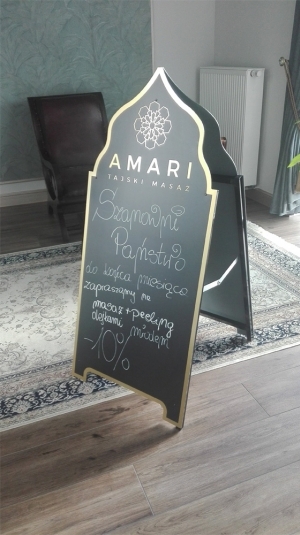 AMARI
TAJSKI MASAŻ
Szanowni
Państwo
do końca miesiąca
zapraszamy na
masaż + peeling
dłońmi miodem
-10%